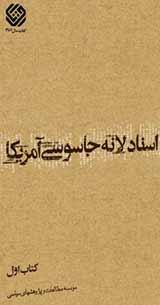 کتاب سال ۳۸۶
اسناد لانه جاسوسی آمریکا
کتاب اول
موسسه مطالعات و پژوهشهای سیاسی